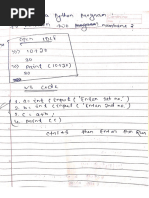 a Python program :
two numbers ?
open IDLE
>>> 10+20
30
>>> print (10+20)
30
VS Code
1. a = int (input ("Enter 1st no."))
2. b = int (input ("Enter 2nd no."))
3. c = a+b
4. print (c)
ctrl+S then Enter the Run